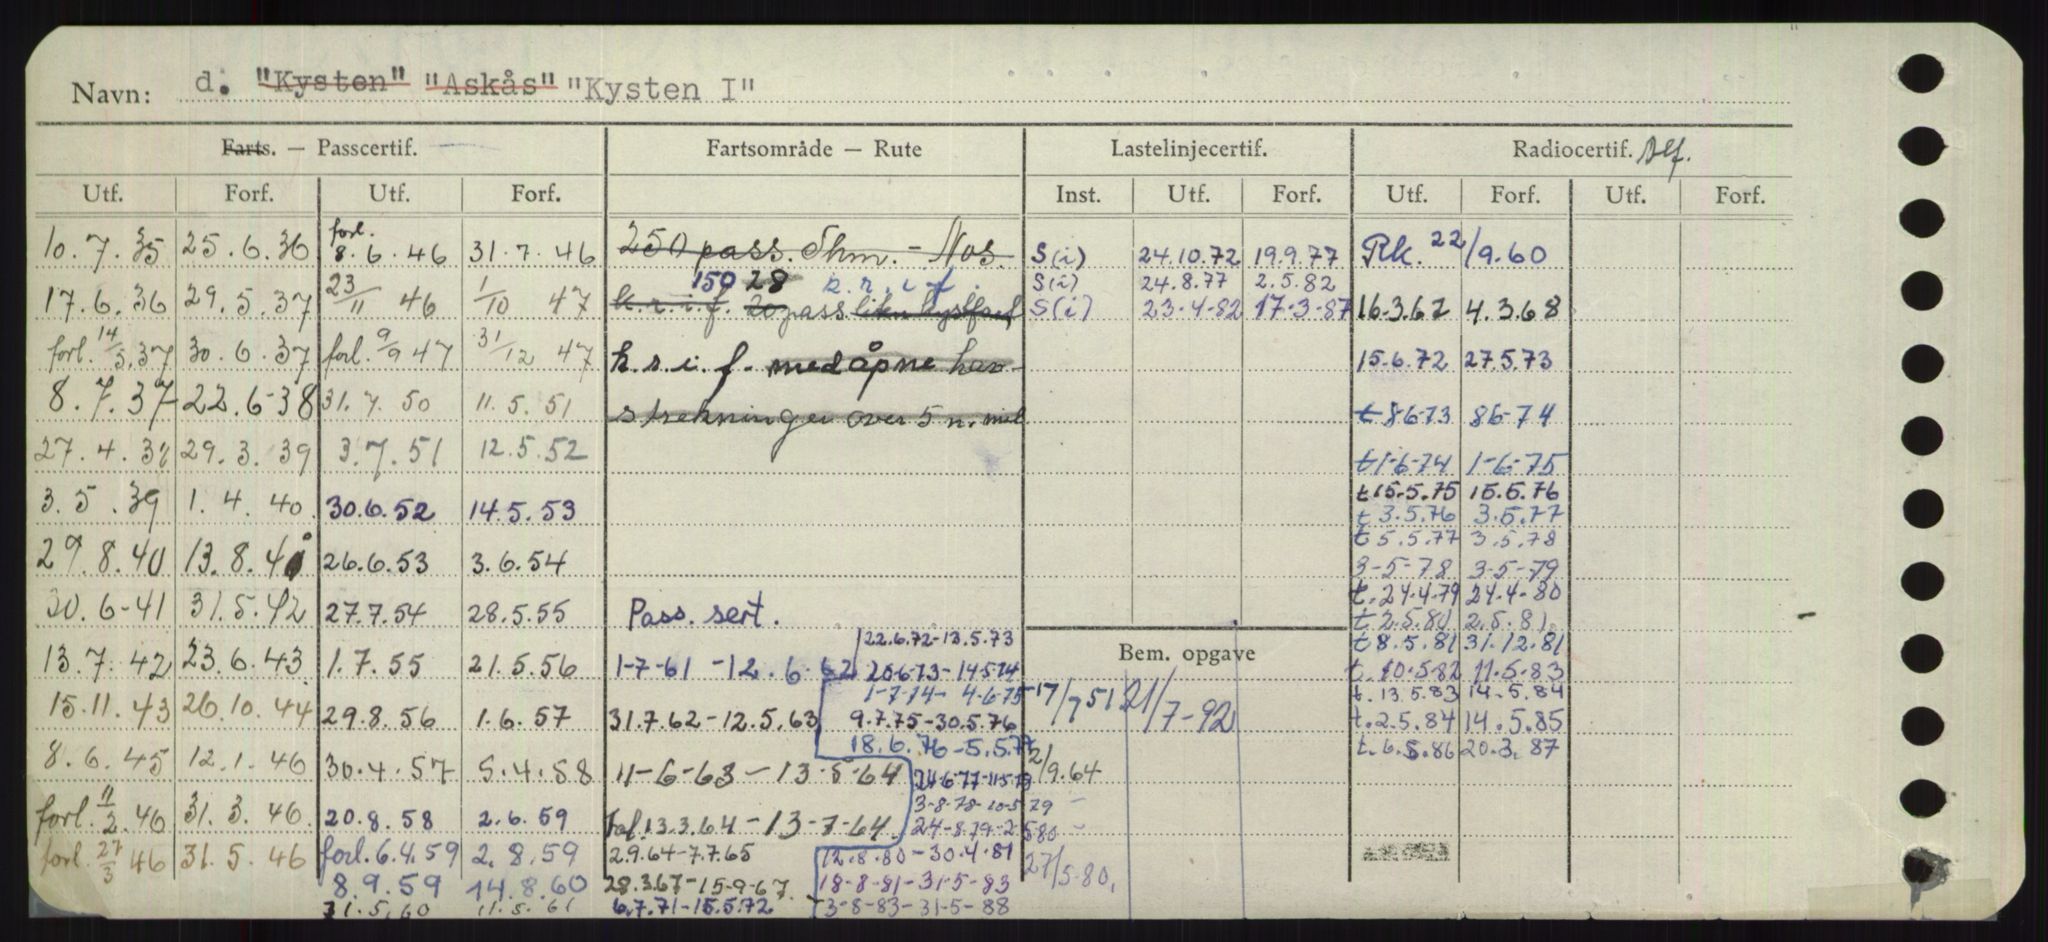 Navn: d. "Kysten" "Askås" "Kysten I"
Farts. — Passcertif. Fartsområde — Rute Lastelinjecertif. Radiocertif. Slf.
Utf. Forf. Utf. Forf. Inst. Utf. Forf. Utf. Forf. Utf. Forf.
10.7.35 25.6.36 forl. 8.6.46 31.7.46 250 pass. Thm. - Nos. S(i) 24.10.72 19.9.77 Rk. 22/9.60
150 28 k.r.i.f. S(i) 24.8.77 2.5.82
17.6.36 29.5.37 23/11 46 1/10 47 k.r.i.f. 20 pass. liten kystfart S(i) 23.4.82 17.3.87 16.3.67 4.3.68
forl. 14/5.37 30.6.37 forl. 9/9 47 31/12 47 k.s.i.f. med åpne hav- 15.6.72 27.5.73
8.7.37 22.6-38 31.7.50 11.5.51 strekninger over 5 n. mil t 8-6-73 8-6-74
27.4.38 29.3.39 3.7.51 12.5.52 t 1-6-74 1-6-75
3.5.39 1.4.40 30.6.52 14.5.53 t 15.5.75 15.5.76
t. 3.5.76 3.5.77
t 5.5.77 3.5.78
29.8.40 13.8.40 26.6.53 3.6.54 3-5-78 3-5-79
t. 24.4.79 24.4-80
30.6-41 31.5.42 27.7.54 28.5.55 Pass. sert. t 2.5.80 2.5.81
22.6.72-13.5.73 t 8.5.81 31.12.81
13.7.42 23.6.43 1.7.55 21.5.56 1-7-61 - 12.6.62 20-6-73-14-5-74 Bem. opgave t. 10.5.82 11.5.83
1-7-74- 4-6-75 t. 13.5.83 14.5.84
15.11.43 26.10.44 29.8.56 1.6.57 31.7.62-12.5.63 9.7.75-30.5.76 17/7 51 21/7-92 t. 2.5.84 14.5.85
18.6.76-5.5.77 t. 6.5.86 20.3.87
8.6.45 12.1.46 30.4.57 5.4.58 11-6-63-13-5-64 24-6-77-11-5-78 2/9.64
3-8-78-10-5-79
forl. 11/2.46 31.3.46 20.8.58 2.6.59 Fol. 13.3.64-13-7-64 24-8-79-2-5-80
forl. 27/3 46 31.5.46 forl. 6.4.59 2.8.59 2.9.64-7.7.65 12.8.80-30.4.81 27/5-80.
8.9.59 14.8.60 28.3.67-15-9-67. 18-8-81-31-5-83
31.5.60 11.5.61 6.7.71-15.5.72 3-8-83-31-5-88